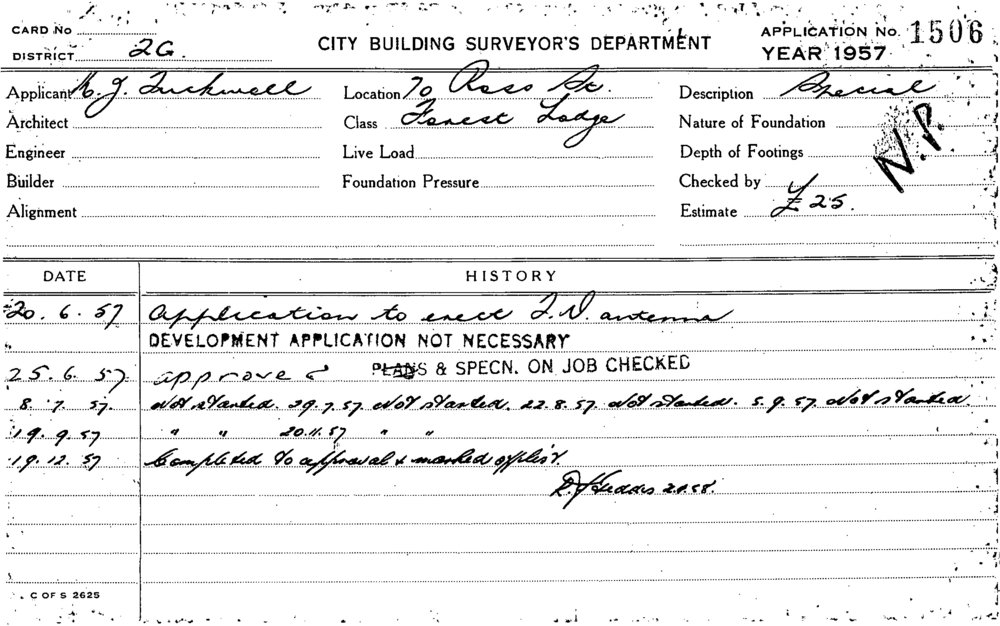 CARD No
DISTRICT 2G.
CITY BUILDING SURVEYOR'S DEPARTMENT
APPLICATION No. 1506
YEAR 1957
Applicant K. J. Tuckwell
Location 70 Ross St.
Description Special
Architect
Class Forest Lodge
Nature of Foundation
N.P.
Engineer
Live Load
Depth of Footings
Builder
Foundation Pressure
Checked by
Alignment
Estimate £25.
DATE
HISTORY
20. 6. 57 Application to erect T.V. antenna
DEVELOPMENT APPLICATION NOT NECESSARY
25. 6. 57. approved PLANS & SPECN. ON JOB CHECKED
8. 7. 57. Not started. 29.7.57 Not started. 22.8.57. Not started. 5.9.57. Not started.
19. 9. 57 " " 20.11.57 " "
19. 12. 57 Completed to approval & marked off
C OF S 2625